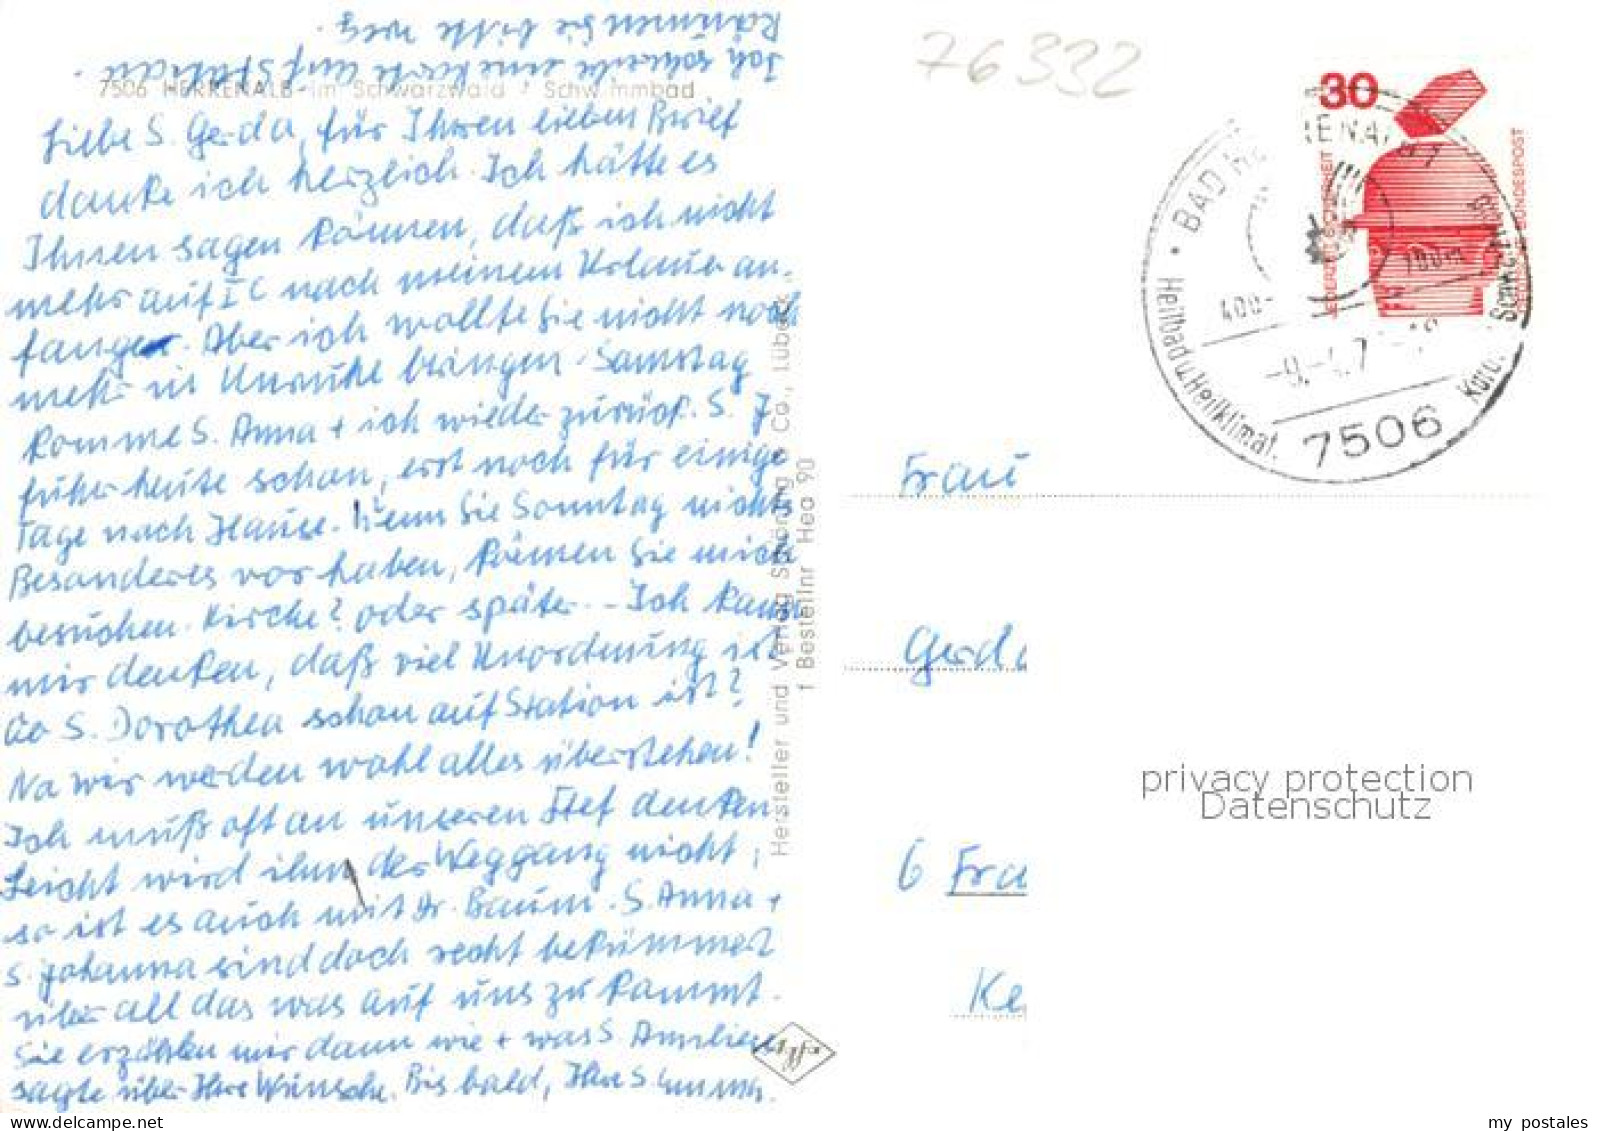 Ich schreibe eine Karte auf Station.
Räumen Sie bitte weg.
7506 HERRENALB im Schwarzwald Schwimmbad
Liebe S. Gerda, für Ihren lieben Brief
danke ich herzlich. Ich hätte es
Ihnen sagen können, daß ich nicht
mehr auf I C nach meinem Urlaub an-
fange. Aber ich wollte Sie nicht noch
mehr in Unruhe bringen. Samstag
komme S. Anna + ich wieder zurück. S. J
fuhr heute schon, erst noch für einige
Tage nach Hause. Wenn Sie Sonntag nichts
Besonderes vor haben, können Sie mich
besuchen. Kirche? oder später. - Ich kann
mir denken, daß viel Unordnung ist
wo S. Dorothea schon auf Station ist?
Na wir werden wohl alles überstehen!
Ich muß oft an unseren Stef denken
Leicht wird ihm der Weggang nicht,
so ist es auch mit Dr. Baum. S. Anna +
S. Johanna sind doch recht bekümmert
über all das was auf uns zu kommt.
Sie erzählen mir dann wie + was S. Annliese
sagte über Ihre Wünsche. Bis bald, Ihre S. Emma.
Hersteller und Verlag Schöning & Co., Lübeck
f Bestellnr Hea 90
76332
30
JEDERZEIT SICHERHEIT
DEUTSCHE BUNDESPOST
BAD HERRENALB 1
400-700m
-9.-4.7 -18
7506
Heilbad u. Heilklimat. Kurort Schwarzwald
Frau
Gerda
privacy protection
Datenschutz
6 Fra
Ke
my postales